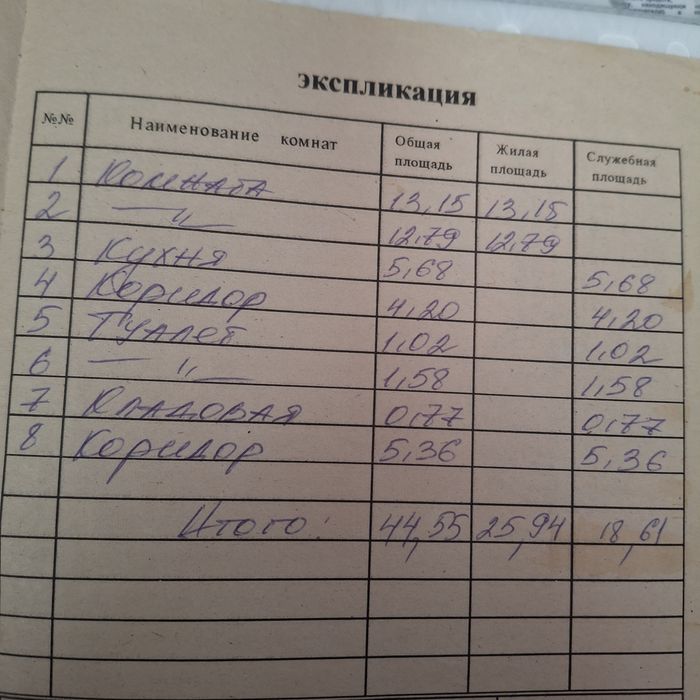 экспликация
№№ Наименование комнат Общая площадь Жилая площадь Служебная площадь
1 Комната 13,15 13,15
2 — „ — 12,79 12,79
3 Кухня 5,68 5,68
4 Коридор 4,20 4,20
5 Туалет 1,02 1,02
6 — „ — 1,58 1,58
7 Кладовая 0,77 0,77
8 Коридор 5,36 5,36
Итого: 44,55 25,94 18,61